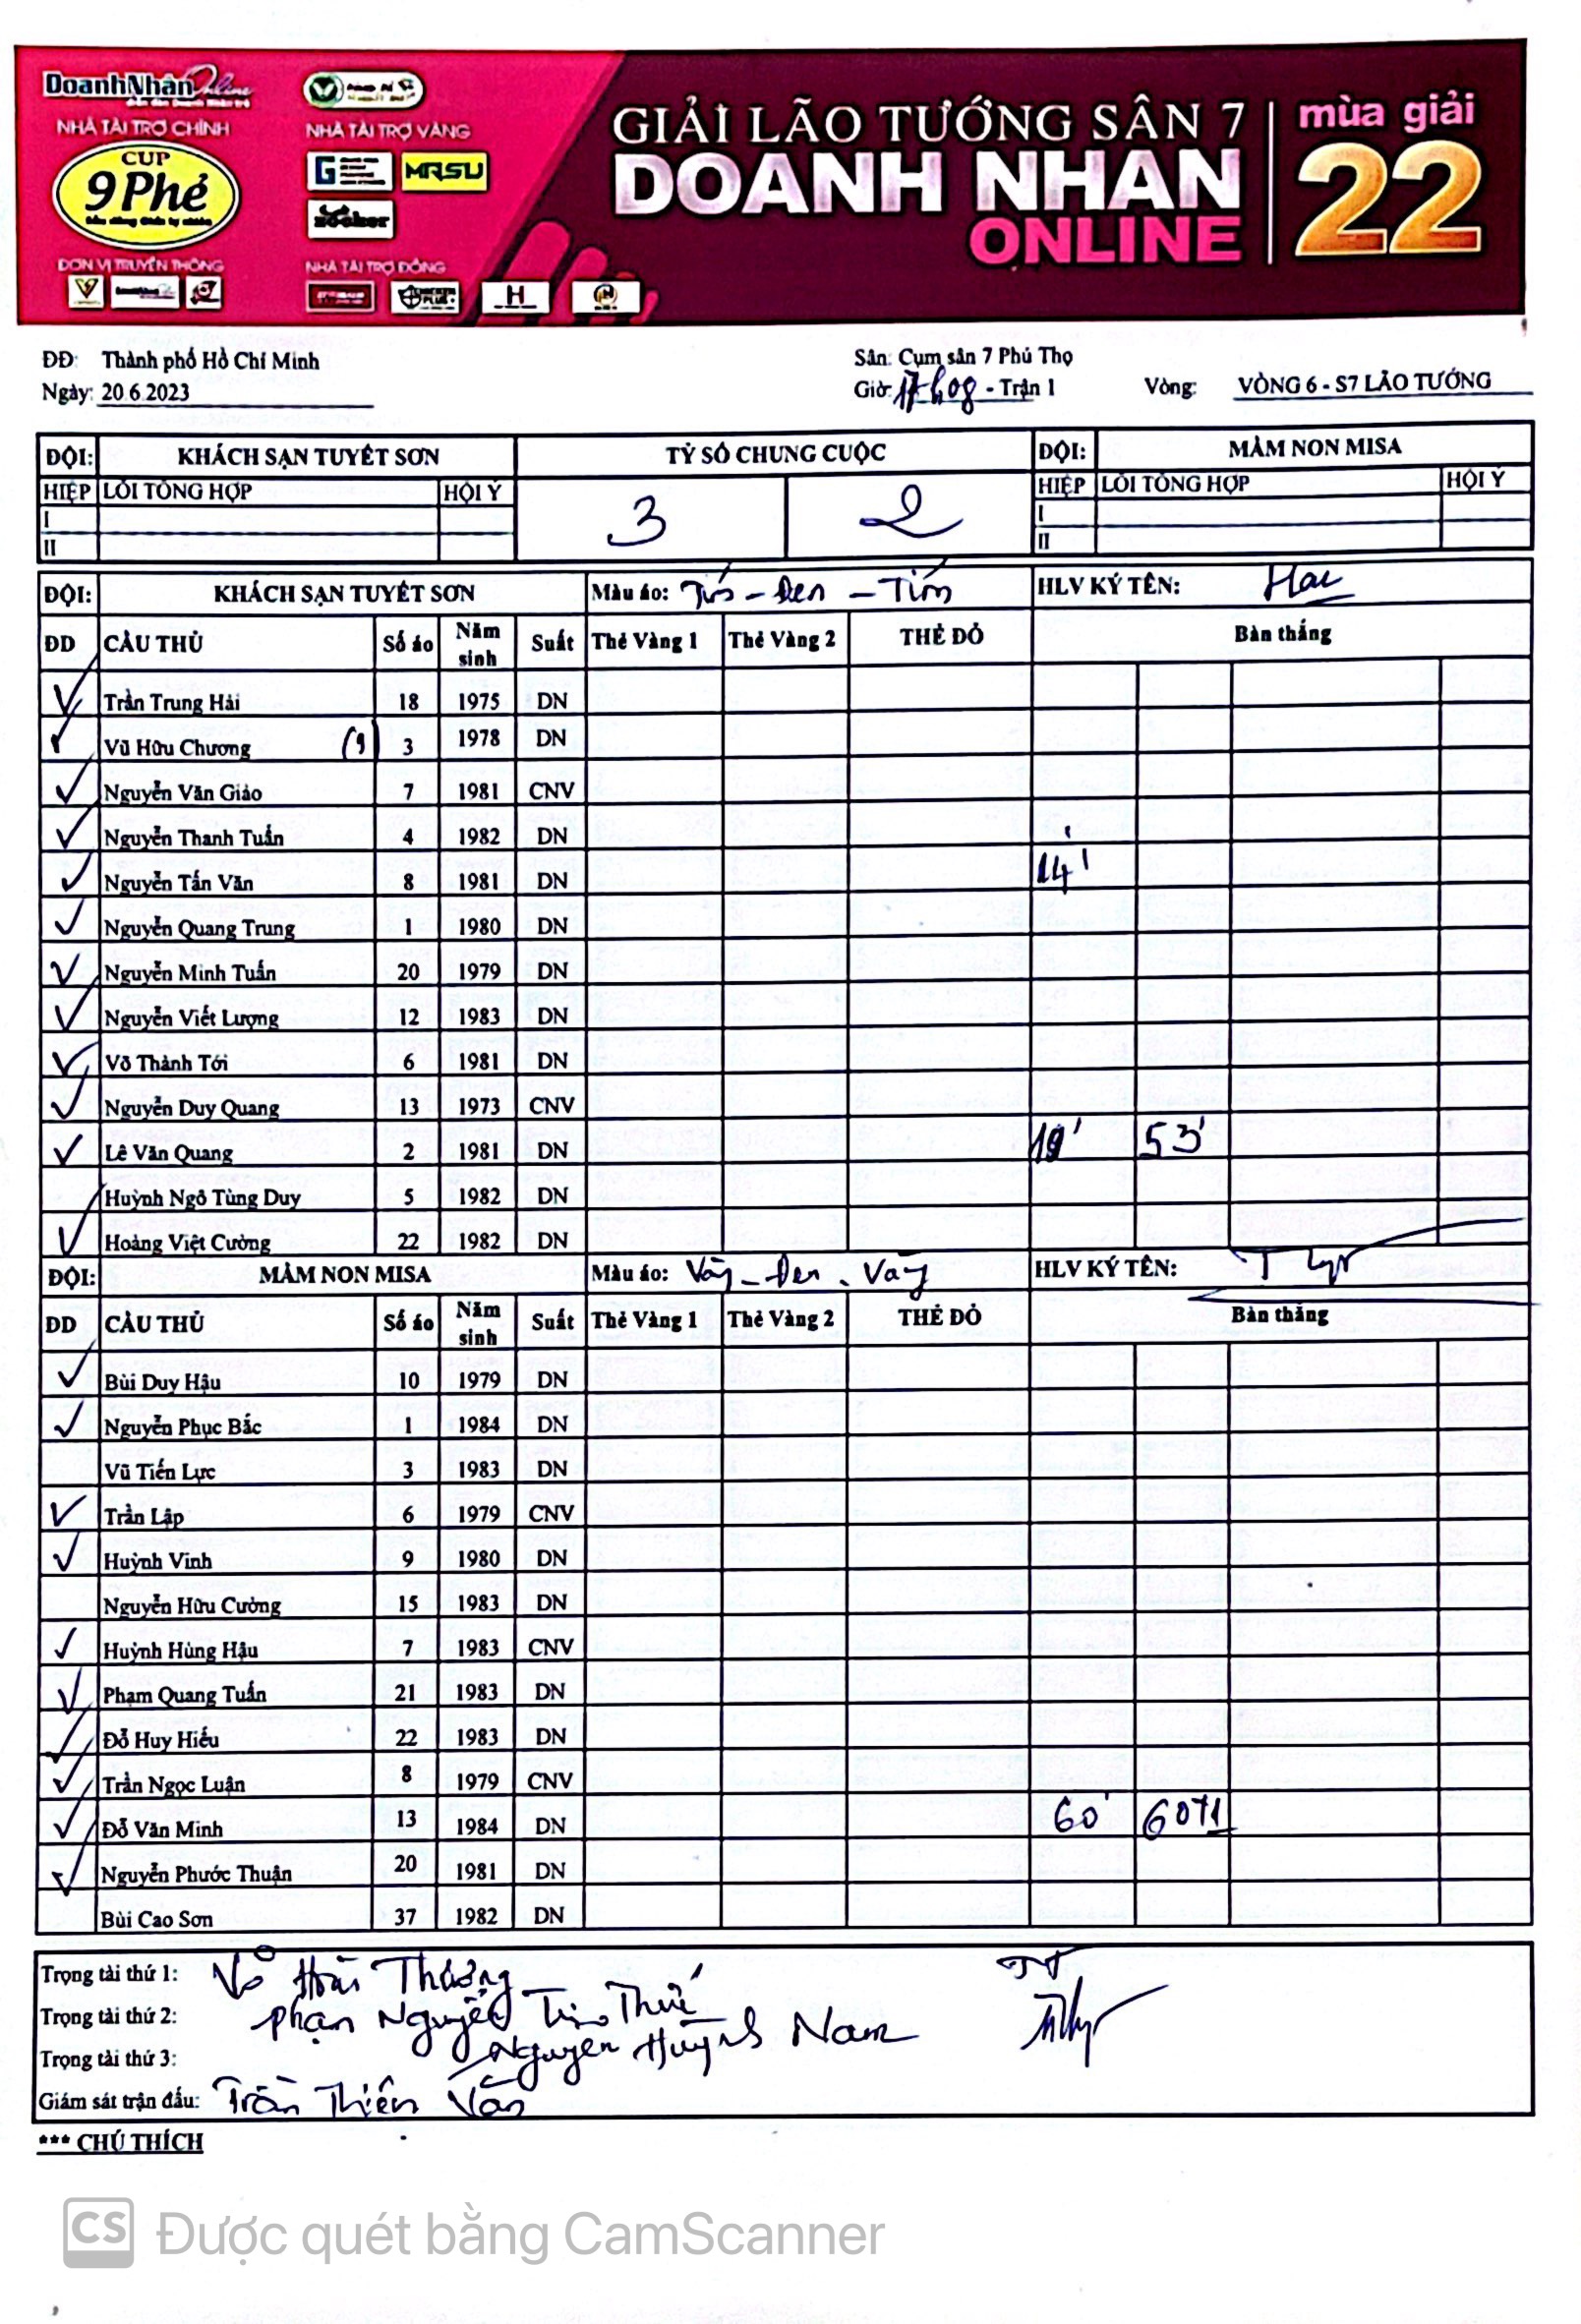 DoanhNhân Online
NHÀ TÀI TRỢ CHÍNH
CUP
9 Phẻ
NHÀ TÀI TRỢ VÀNG
G
MRSU
zocker
ĐƠN VỊ TRUYỀN THÔNG
NHÀ TÀI TRỢ ĐỒNG
PLUS+
H
GIẢI LÃO TƯỚNG SÂN 7
DOANH NHAN
ONLINE
mùa giải
22
ĐĐ: Thành phố Hồ Chí Minh
Sân: Cụm sân 7 Phú Thọ
Ngày: 20.6.2023
Giờ: 17h08 - Trận 1 Vòng: VÒNG 6 - S7 LÃO TƯỚNG
ĐỘI: KHÁCH SẠN TUYẾT SƠN TỶ SỐ CHUNG CUỘC ĐỘI: MẦM NON MISA
HIỆP LỖI TỔNG HỢP HỘI Ý 3 2 HIỆP LỖI TỔNG HỢP HỘI Ý
I I
II II
ĐỘI: KHÁCH SẠN TUYẾT SƠN Màu áo: Tím - Đen - Tím HLV KÝ TÊN: Hai
ĐD CẦU THỦ Số áo Năm sinh Suất Thẻ Vàng 1 Thẻ Vàng 2 THẺ ĐỎ Bàn thắng
Trần Trung Hải 18 1975 DN
Vũ Hữu Chương (9) 3 1978 DN
Nguyễn Văn Giáo 7 1981 CNV
Nguyễn Thanh Tuấn 4 1982 DN
Nguyễn Tấn Văn 8 1981 DN 14'
Nguyễn Quang Trung 1 1980 DN
Nguyễn Minh Tuấn 20 1979 DN
Nguyễn Viết Lượng 12 1983 DN
Võ Thành Tới 6 1981 DN
Nguyễn Duy Quang 13 1973 CNV
Lê Văn Quang 2 1981 DN 53'
Huỳnh Ngô Tùng Duy 5 1982 DN
Hoàng Việt Cường 22 1982 DN
ĐỘI: MẦM NON MISA Màu áo: Vàng - Đen - Vàng HLV KÝ TÊN:
ĐD CẦU THỦ Số áo Năm sinh Suất Thẻ Vàng 1 Thẻ Vàng 2 THẺ ĐỎ Bàn thắng
Bùi Duy Hậu 10 1979 DN
Nguyễn Phục Bắc 1 1984 DN
Vũ Tiến Lực 3 1983 DN
Trần Lập 6 1979 CNV
Huỳnh Vinh 9 1980 DN
Nguyễn Hữu Cường 15 1983 DN
Huỳnh Hùng Hậu 7 1983 CNV
Phạm Quang Tuấn 21 1983 DN
Đỗ Huy Hiếu 22 1983 DN
Trần Ngọc Luận 8 1979 CNV
Đỗ Văn Minh 13 1984 DN 60' 60+1
Nguyễn Phước Thuận 20 1981 DN
Bùi Cao Sơn 37 1982 DN
Trọng tài thứ 1: Võ Hoài Thương
Trọng tài thứ 2: Phan Nguyễn
Trọng tài thứ 3: Nguyễn Huỳnh Nam
Giám sát trận đấu: Trần Thiên Vân
*** CHÚ THÍCH
CS Được quét bằng CamScanner